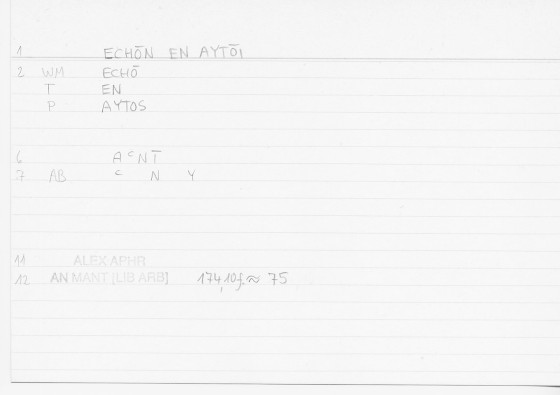 1 ECHŌN EN AYTŌI
2 WM ECHŌ
T EN
P AYTOS
6 A c N T̄
7 AB c N Y
11 ALEX APHR
12 AN MANT [LIB ARB] 174,10f. ≈ 75